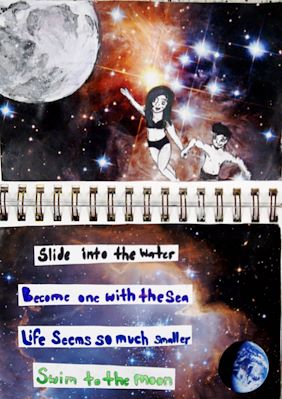 Slide into the water
Become one with the Sea
Life Seems so much smaller
Swim to the moon